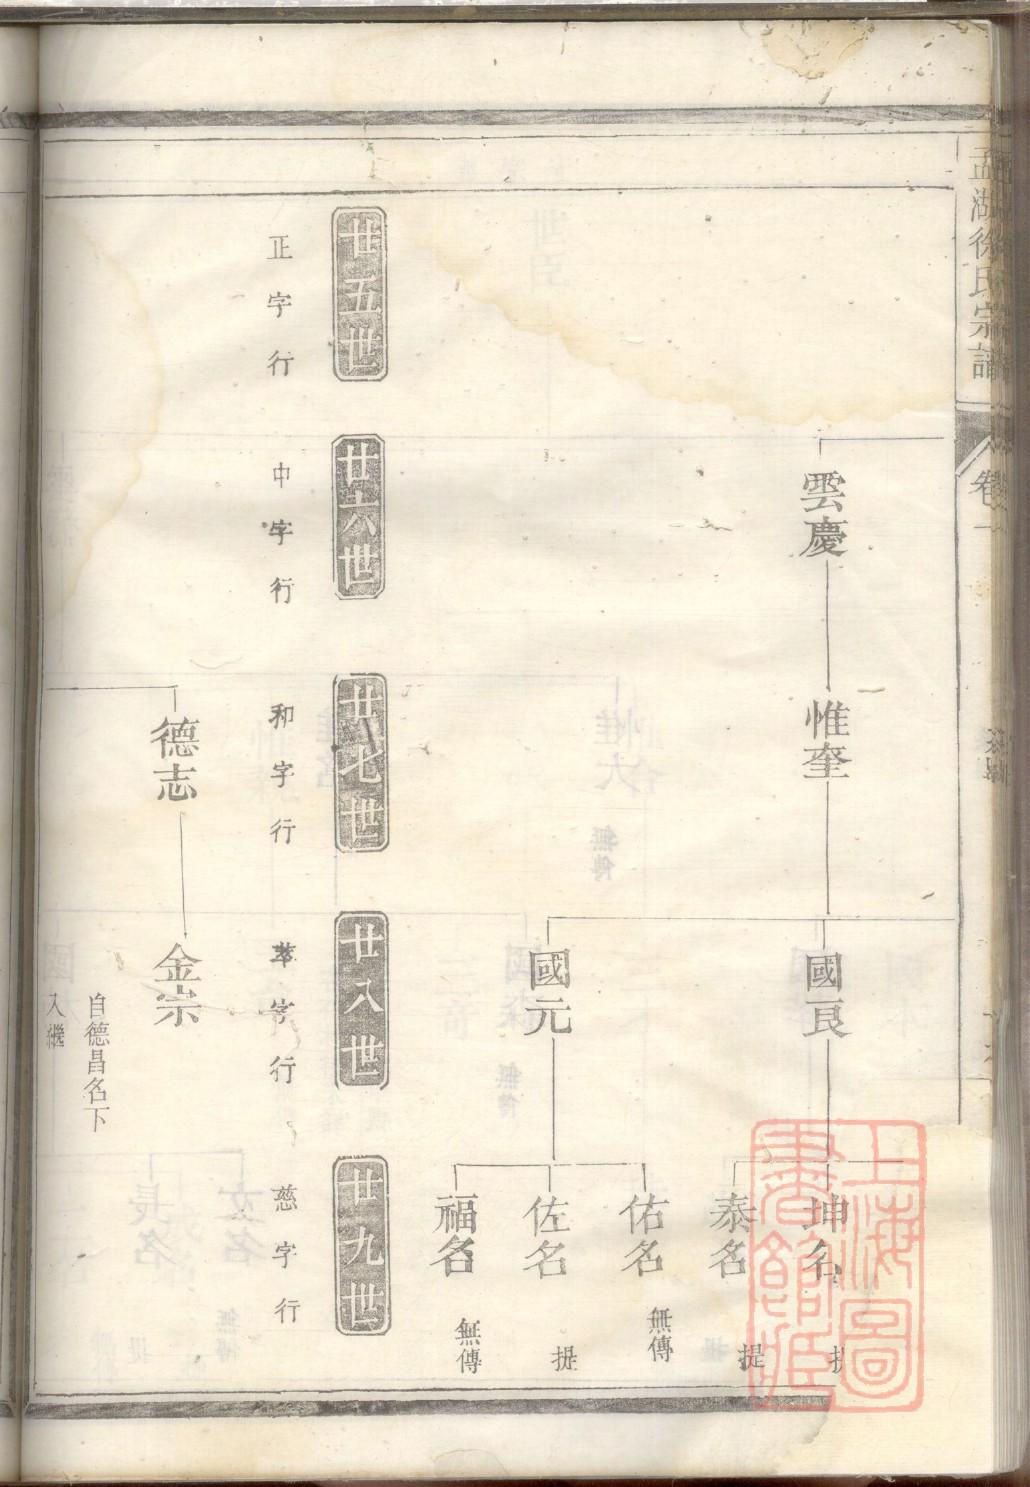 孟湖徐氏宗譜
卷一
雲慶
惟奎
國良
坤名
提
泰名
提
國元
佑名
無傳
佐名
提
福名
無傳
廿五世
廿六世
廿七世
廿八世
廿九世
正字行
中字行
和字行
萃字行
慈字行
德志
金宗
自德昌名下
入繼
上海圖
書館藏